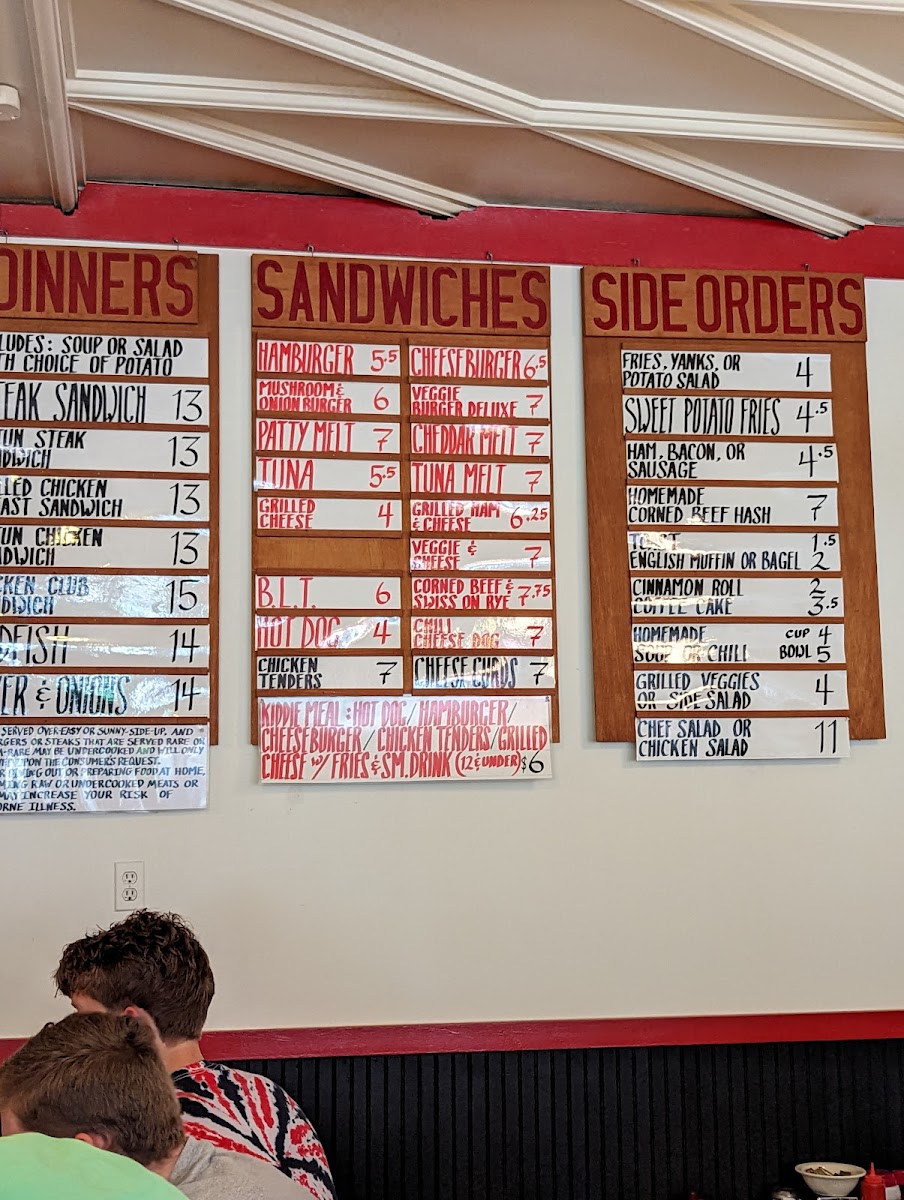 DINNERS
SOUP OR SALAD
CHOICE OF POTATO
SANDWICH 13
STEAK 13
CHICKEN 13
SANDWICH
CHICKEN 13
CLUB 15
14
& ONIONS 14
SERVED OVER-EASY OR SUNNY-SIDE-UP, AND
OR STEAKS THAT ARE SERVED RARE OR
MAY BE UNDERCOOKED AND WILL ONLY
UPON THE CONSUMER'S REQUEST.
OUT OR PREPARING FOOD AT HOME,
RAW OR UNDERCOOKED MEATS OR
MAY INCREASE YOUR RISK OF
ILLNESS.
SANDWICHES
HAMBURGER 5.5
MUSHROOM &
ONION BURGER 6
PATTY MELT 7
TUNA 5.5
GRILLED
CHEESE 4
B.L.T. 6
HOT DOG 4
CHICKEN
TENDERS 7
CHEESEBURGER 6.5
VEGGIE
BURGER DELUXE 7
CHEDDAR MELT 7
TUNA MELT 7
GRILLED HAM
& CHEESE 6.25
VEGGIE &
CHEESE 7
CORNED BEEF &
SWISS ON RYE 7.75
CHILI
CHEESE DOG 7
CHEESE CURDS 7
KIDDIE MEAL: HOT DOG/HAMBURGER/
CHEESEBURGER/CHICKEN TENDERS/GRILLED
CHEESE W/ FRIES & SM. DRINK (12 & UNDER) $6
SIDE ORDERS
FRIES, YANKS, OR
POTATO SALAD 4
SWEET POTATO FRIES 4.5
HAM, BACON, OR
SAUSAGE 4.5
HOMEMADE
CORNED BEEF HASH 7
TOAST 1.5
ENGLISH MUFFIN OR BAGEL 2
CINNAMON ROLL 2
COFFEE CAKE 3.5
HOMEMADE CUP 4
SOUP OR CHILI BOWL 5
GRILLED VEGGIES
OR SIDE SALAD 4
CHEF SALAD OR
CHICKEN SALAD 11